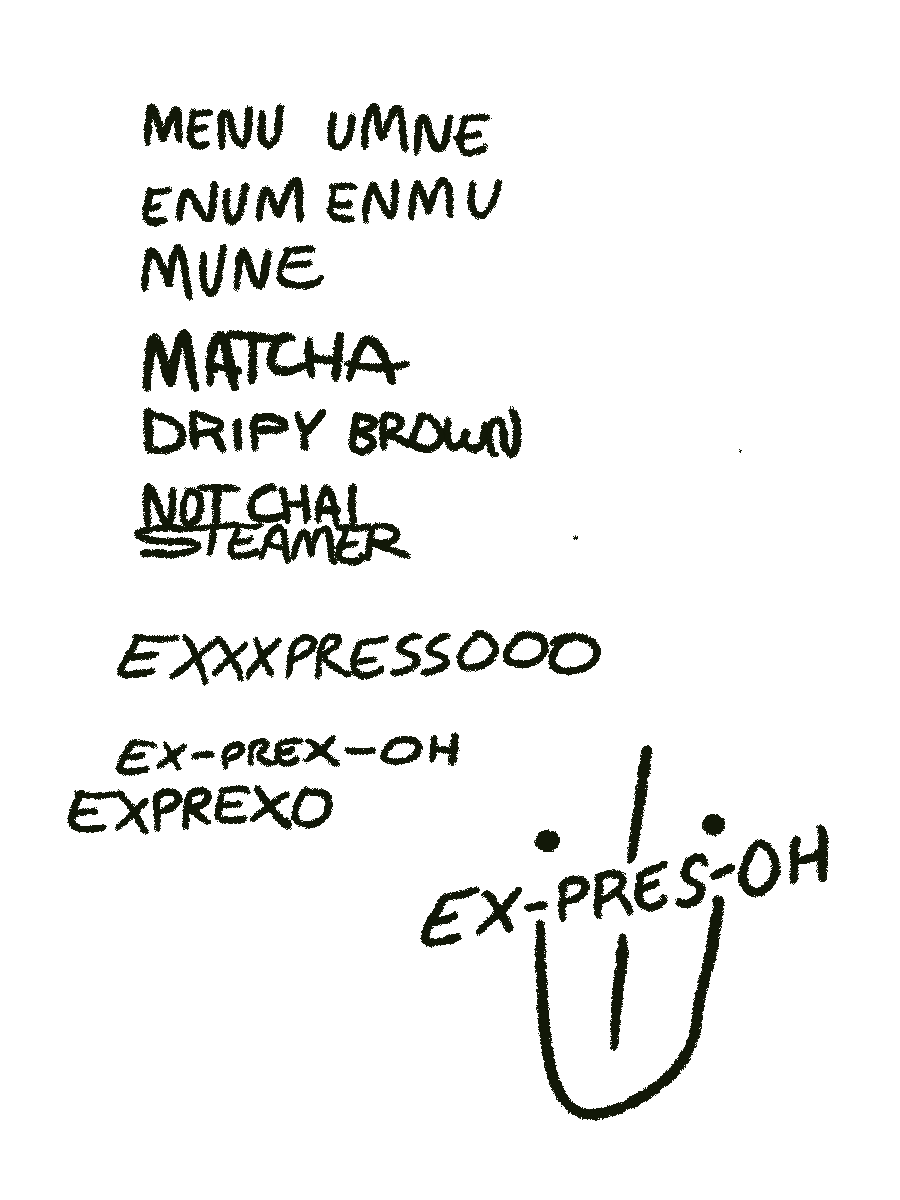 MENU UMNE
ENUM ENMU
MUNE
MATCHA
DRIPY BROWN
NOT CHAI
STEAMER
EXXXPRESSOOO
EX-PREX-OH
EXPREXO
EX-PRES-OH